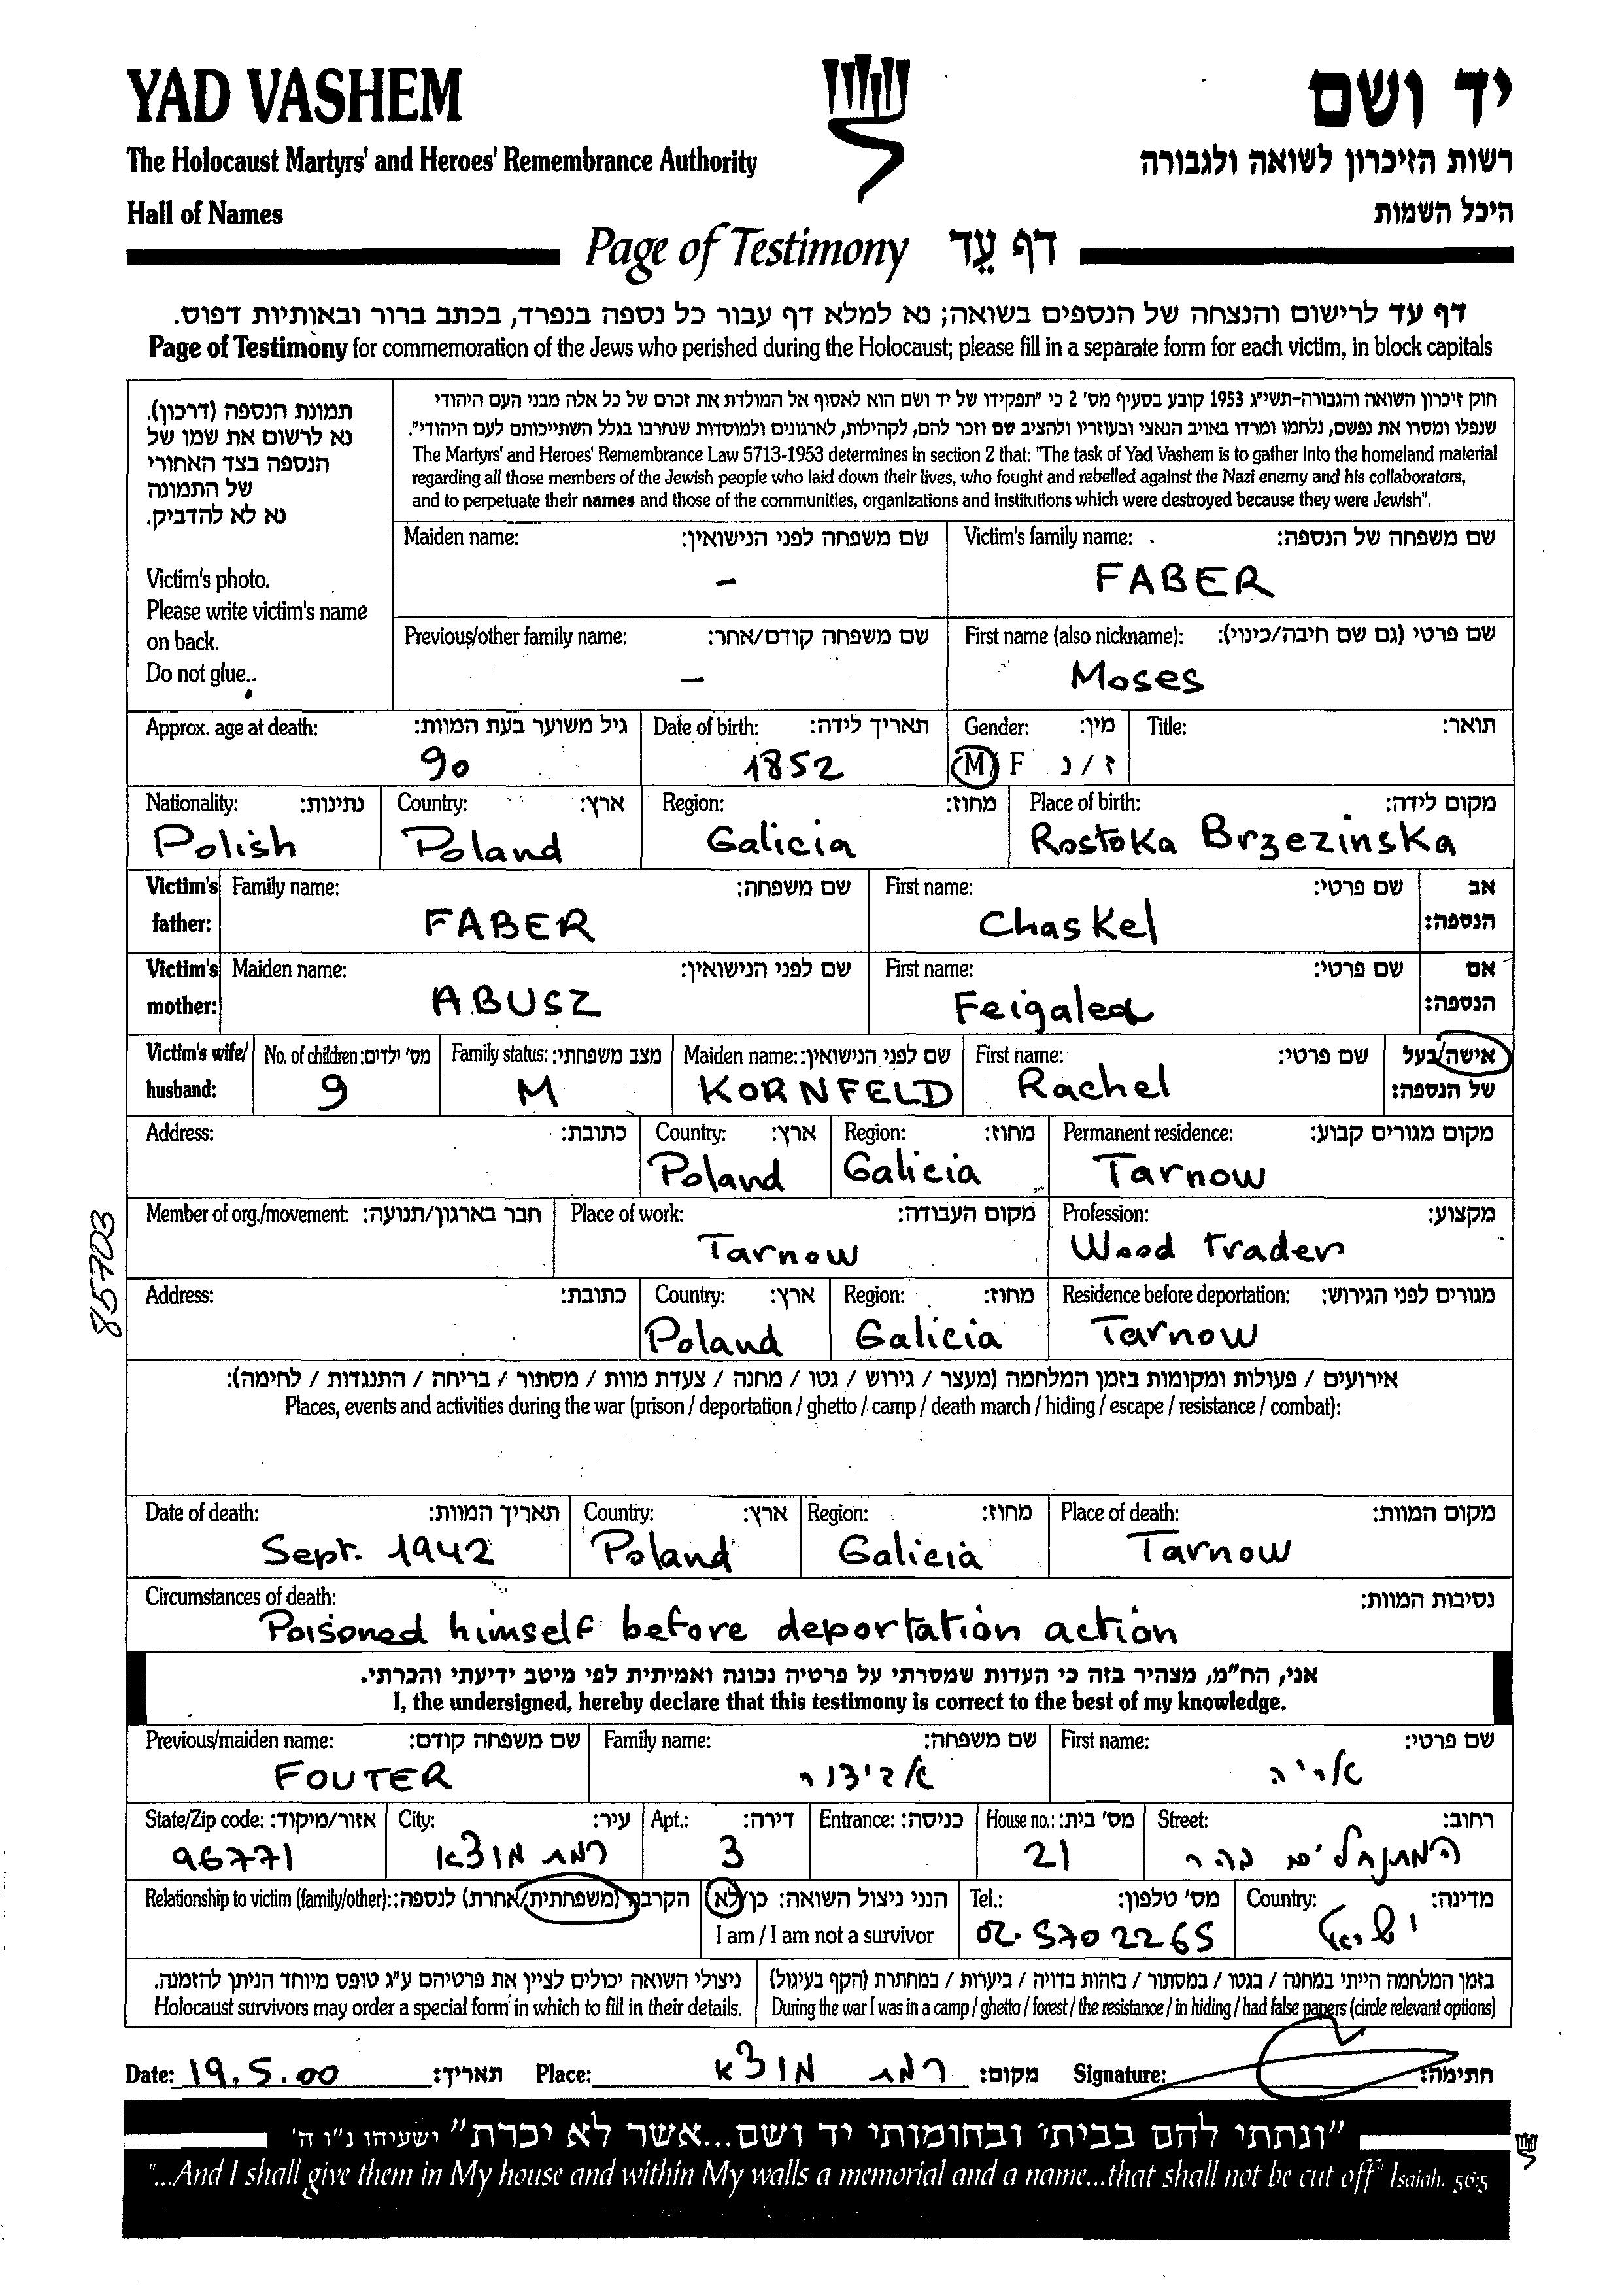 YAD VASHEM
יד ושם
The Holocaust Martyrs' and Heroes' Remembrance Authority
רשות הזיכרון לשואה ולגבורה
Hall of Names
היכל השמות
Page of Testimony דף עֵד
דף עד לרישום והנצחה של הנספים בשואה; נא למלא דף עבור כל נספה בנפרד, בכתב ברור ובאותיות דפוס.
Page of Testimony for commemoration of the Jews who perished during the Holocaust; please fill in a separate form for each victim, in block capitals
תמונת הנספה (דרכון).
נא לרשום את שמו של
הנספה בצד האחורי
של התמונה
נא לא להדביק.
Victim's photo.
Please write victim's name
on back.
Do not glue..
חוק זיכרון השואה והגבורה-תשי״ג 1953 קובע בסעיף מס' 2 כי "תפקידו של יד ושם הוא לאסוף אל המולדת את זכרם של כל אלה מבני העם היהודי
שנפלו ומסרו את נפשם, נלחמו ומרדו באויב הנאצי ובעוזריו ולהציב שם וזכר להם, לקהילות, לארגונים ולמוסדות שנחרבו בגלל השתייכותם לעם היהודי".
The Martyrs' and Heroes' Remembrance Law 5713-1953 determines in section 2 that: "The task of Yad Vashem is to gather into the homeland material
regarding all those members of the Jewish people who laid down their lives, who fought and rebelled against the Nazi enemy and his collaborators,
and to perpetuate their names and those of the communities, organizations and institutions which were destroyed because they were Jewish".
Maiden name: שם משפחה לפני הנישואין: Victim's family name: שם משפחה של הנספה:
– FABER
Previous/other family name: שם משפחה קודם/אחר: First name (also nickname): שם פרטי (גם שם חיבה/כינוי):
– Moses
Approx. age at death: גיל משוער בעת המוות: Date of birth: תאריך לידה: Gender: מין: Title: תואר:
90 1852 M F ז / נ
Nationality: נתינות: Country: ארץ: Region: מחוז: Place of birth: מקום לידה:
Polish Poland Galicia Rostoka Brzezinska
Victim's father: Family name: שם משפחה: First name: שם פרטי: אב הנספה:
FABER Chaskel
Victim's mother: Maiden name: שם לפני הנישואין: First name: שם פרטי: אם הנספה:
ABUSZ Feigalea
Victim's wife/ husband: No. of children: מס' ילדים: Family status: מצב משפחתי: Maiden name: שם לפני הנישואין: First name: שם פרטי: אישה/בעל של הנספה:
9 M KORNFELD Rachel
Address: כתובת: Country: ארץ: Region: מחוז: Permanent residence: מקום מגורים קבוע:
Poland Galicia Tarnow
Member of org./movement: חבר בארגון/תנועה: Place of work: מקום העבודה: Profession: מקצוע:
Tarnow Wood trader
Address: כתובת: Country: ארץ: Region: מחוז: Residence before deportation: מגורים לפני הגירוש:
Poland Galicia Tarnow
85703
אירועים / פעולות ומקומות בזמן המלחמה (מעצר / גירוש / גטו / מחנה / צעדת מוות / מסתור / בריחה / התנגדות / לחימה):
Places, events and activities during the war (prison / deportation / ghetto / camp / death march / hiding / escape / resistance / combat):
Date of death: תאריך המוות: Country: ארץ: Region: מחוז: Place of death: מקום המוות:
Sept. 1942 Poland Galicia Tarnow
Circumstances of death: נסיבות המוות:
Poisoned himself before deportation action
אני, הח״מ, מצהיר בזה כי העדות שמסרתי על פרטיה נכונה ואמיתית לפי מיטב ידיעתי והכרתי.
I, the undersigned, hereby declare that this testimony is correct to the best of my knowledge.
Previous/maiden name: שם משפחה קודם: Family name: שם משפחה: First name: שם פרטי:
FOUTER אביצור אריה
State/Zip code: אזור/מיקוד: City: עיר: Apt.: דירה: Entrance: כניסה: House no.: מס' בית: Street: רחוב:
96771 רמת מוצא 3 21 המתנחלים בהר
Relationship to victim (family/other): הקרבה (משפחתית/אחרת) לנספה: הנני ניצול השואה: כן/לא Tel.: מס' טלפון: Country: מדינה:
I am / I am not a survivor 02.5702265 ישראל
ניצולי השואה יכולים לציין את פרטיהם ע״ג טופס מיוחד הניתן להזמנה.
Holocaust survivors may order a special form in which to fill in their details.
בזמן המלחמה הייתי במחנה / בגטו / במסתור / בזהות בדויה / ביערות / במחתרת (הקף בעיגול)
During the war I was in a camp / ghetto / forest / the resistance / in hiding / had false papers (circle relevant options)
Date: 19.5.00 תאריך: Place: רמת מוצא מקום: Signature: חתימה:
"ונתתי להם בביתי ובחומותי יד ושם...אשר לא יכרת" ישעיהו נ״ו ה'
"...And I shall give them in My house and within My walls a memorial and a name...that shall not be cut off" Isaiah. 56:5